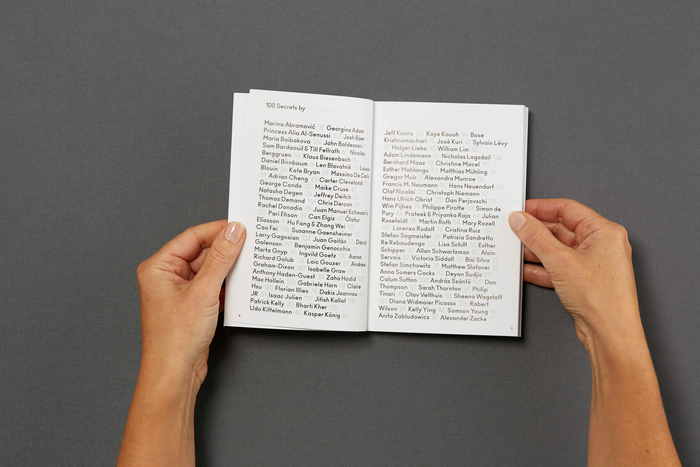 100 Secrets by
Marina Abramović Georgina Adam
Princess Alia Al-Senussi Josh Baer
Maria Baibakova John Baldessari
Sam Bardaouil & Till Fellrath Nicolas
Berggruen Klaus Biesenbach
Daniel Birnbaum Len Blavatnik Louis
Blouin Kate Bryan Massimo De Carlo
Adrian Cheng Carter Cleveland
George Condo Maike Cruse
Natasha Degen Jeffrey Deitch
Thomas Demand Chris Dercon
Rachel Donadio Juan Manuel Echavarría
Pari Ehsan Can Elgiz Ólafur
Eliasson Hu Fang & Zhang Wei
Cao Fei Susanne Gaensheimer
Larry Gagosian Juan Gaitán David
Galenson Benjamin Genocchio
Marta Gnyp Ingvild Goetz Aaron
Richard Golub Loic Gouzer Andrew
Graham-Dixon Isabelle Graw
Anthony Haden-Guest Zaha Hadid
Max Hollein Gabriele Horn Claire
Hsu Florian Illies Dakis Joannou
JR Isaac Julien Jitish Kallat
Patrick Kelly Bharti Kher
Udo Kittelmann Kasper König
4
Jeff Koons Koyo Kouoh Bose
Krishnamachari José Kuri Sylvain Lévy
Holger Liebs William Lim
Adam Lindemann Nicholas Logsdail
Bernhard Maaz Christine Macel
Esther Mahlangu Matthias Mühling
Gregor Muir Alexandra Munroe
Francis M. Naumann Hans Neuendorf
Olaf Nicolai Christoph Niemann
Hans Ulrich Obrist Dan Perjovschi
Wim Pijbes Philippe Pirotte Simon de
Pury Prateek & Priyanka Raja Julian
Rosefeldt Martin Roth Mary Rozell
Lorenzo Rudolf Cristina Ruiz
Stefan Sagmeister Patrizia Sandretto
Re Rebaudengo Lisa Schiff Esther
Schipper Allan Schwartzman Alain
Servais Victoria Siddall Bisi Silva
Stefan Simchowitz Matthew Slotover
Anna Somers Cocks Deyan Sudjic
Calum Sutton András Szántó Don
Thompson Sarah Thornton Philip
Tinari Olav Velthuis Sheena Wagstaff
Diana Widmaier Picasso Robert
Wilson Kelly Ying Samson Young
Anita Zabludowicz Alexander Zacke
5